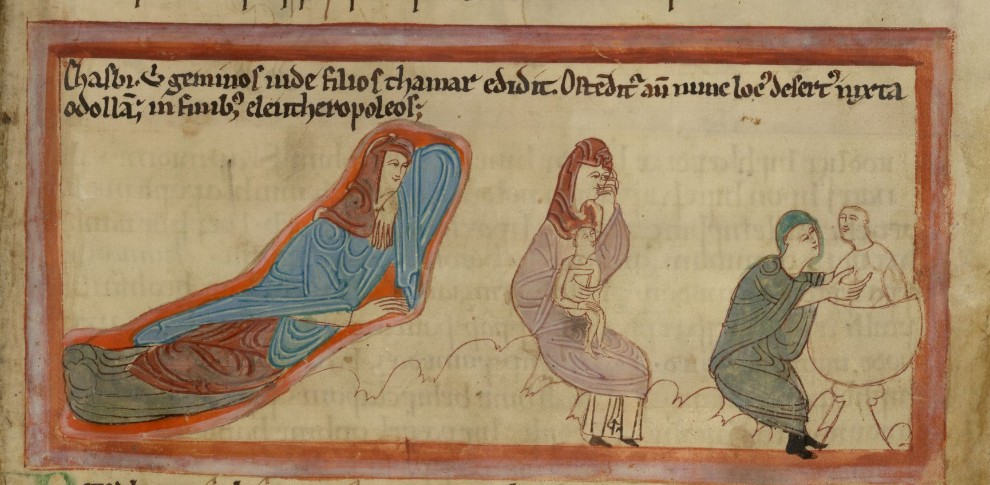 Chasbi. & geminos iude filios thamar edidit. Ostēdit᷑ aū nunc locꝰ desertꝰ iuxta
odollā; in finibꝰ eleutheropoleos;